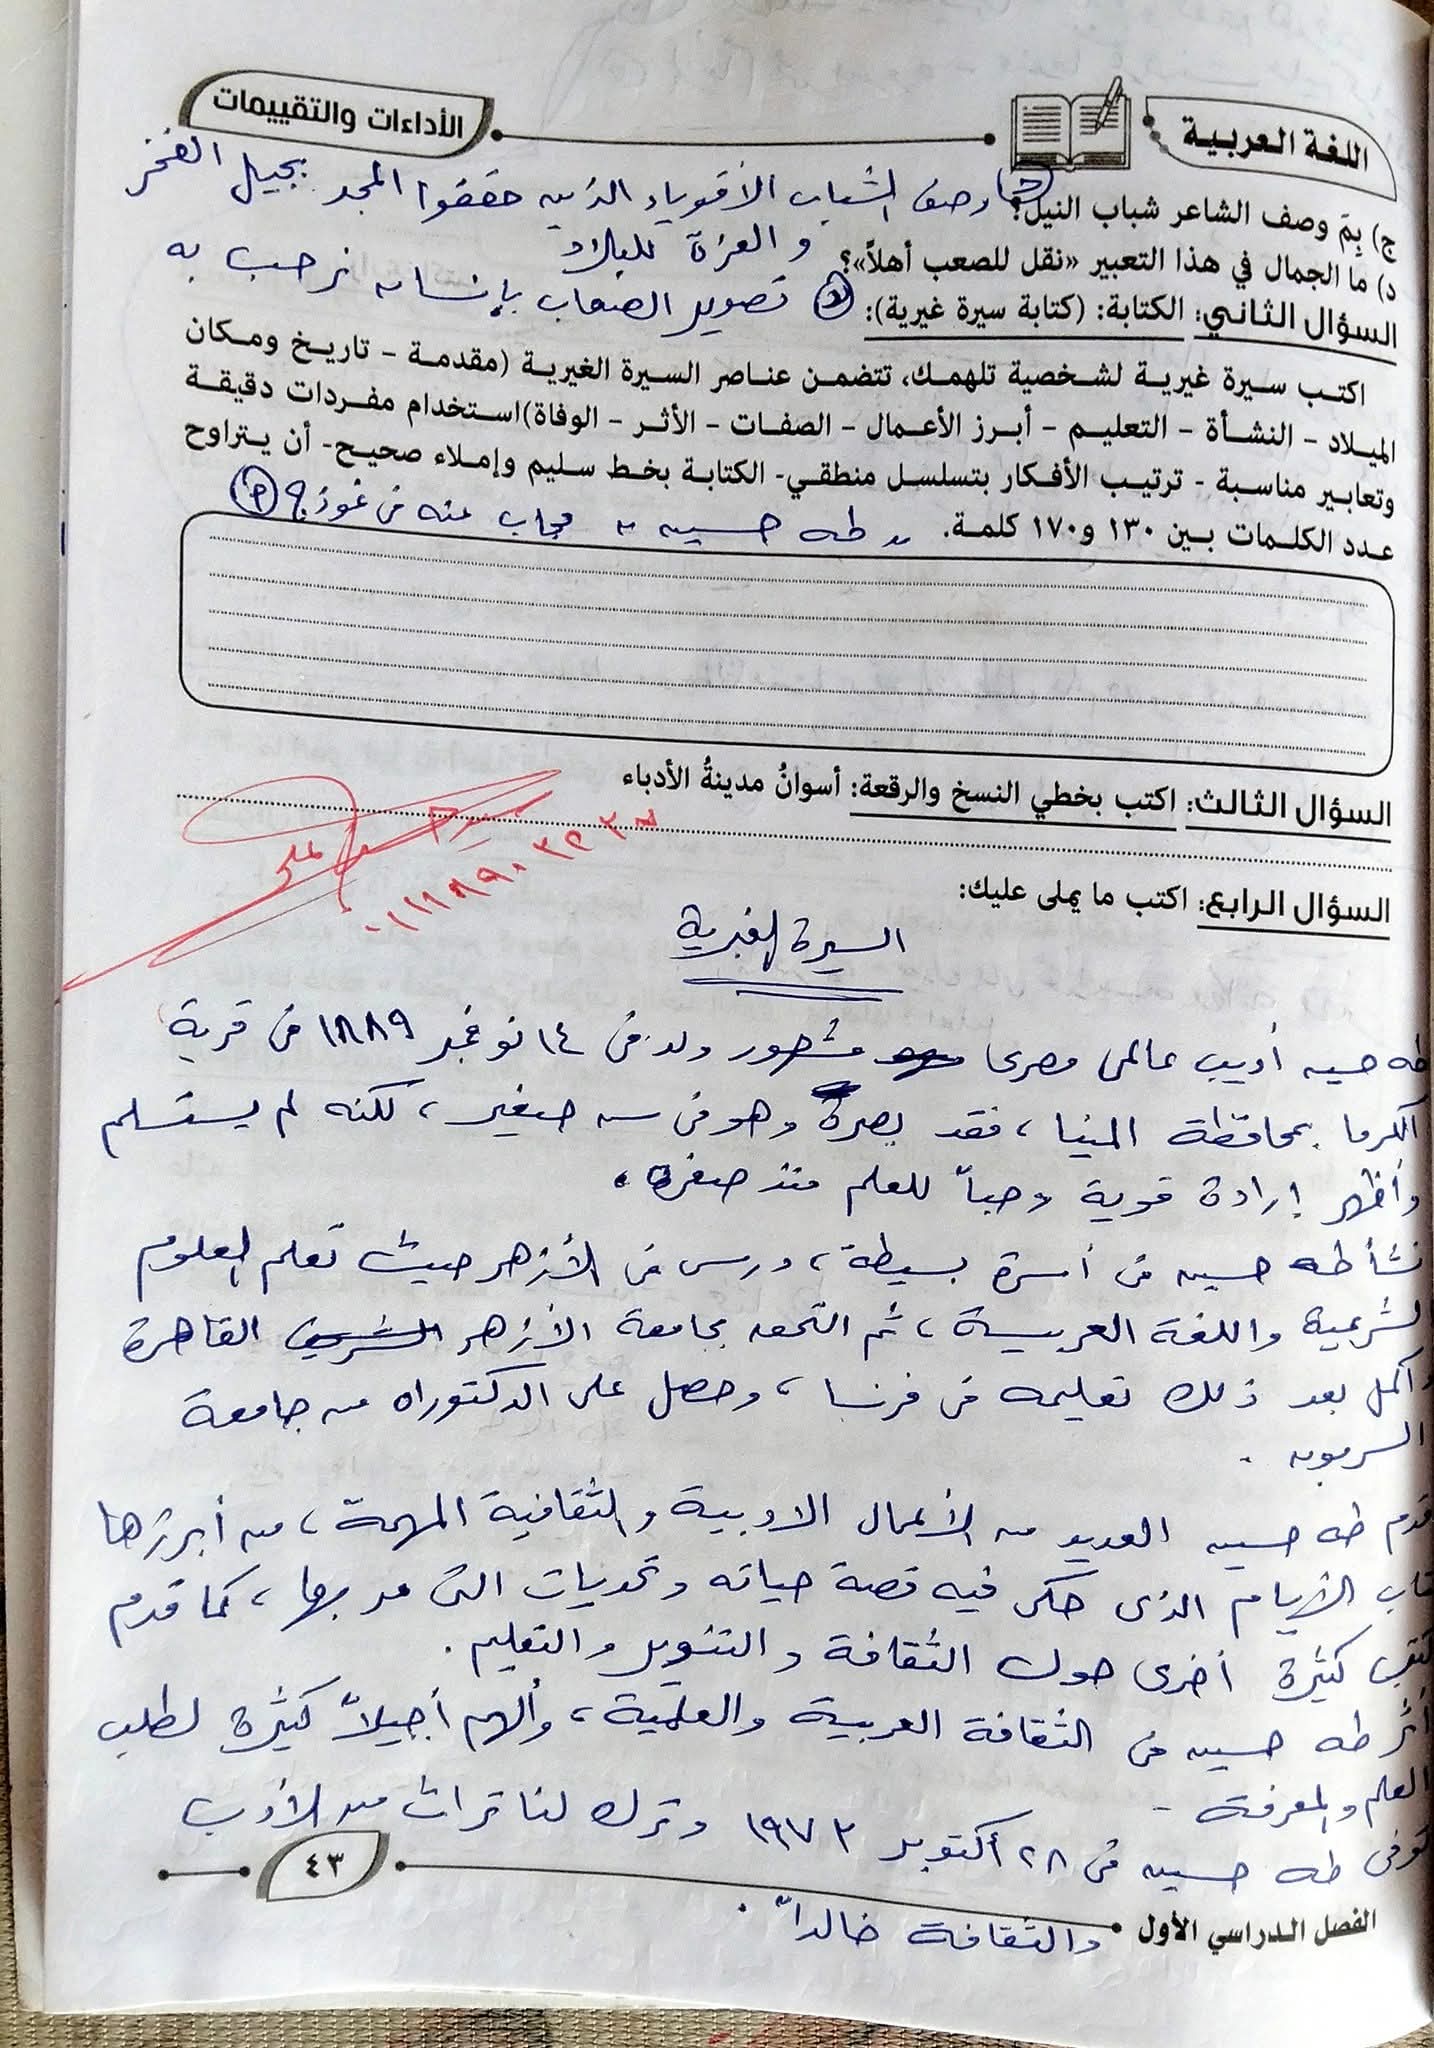 اللغة العربية
الأداءات والتقييمات
ج) بِمَ وصف الشاعر شباب النيل؟
ج) وصف الشباب الأقوياء الذين حققوا المجد بجميل الفخر
والعزة للبلاد
د) ما الجمال في هذا التعبير «نقل للصعب أهلاً»؟
د) تصوير الصعاب بإنسان نرحب به
السؤال الثاني: الكتابة: (كتابة سيرة غيرية):
اكتب سيرة غيرية لشخصية تلهمك، تتضمن عناصر السيرة الغيرية (مقدمة - تاريخ ومكان
الميلاد - النشأة - التعليم - أبرز الأعمال - الصفات - الأثر - الوفاة)استخدام مفردات دقيقة
وتعابير مناسبة - ترتيب الأفكار بتسلسل منطقي- الكتابة بخط سليم وإملاء صحيح- أن يتراوح
عدد الكلمات بين ١٣٠ و١٧٠ كلمة.
" طه حسين " مجاب عنه في نموذج
السؤال الثالث: اكتب بخطي النسخ والرقعة: أسوانُ مدينةُ الأدباء
السؤال الرابع: اكتب ما يملى عليك:
السيرة الغيرية
طه حسين أديب عالمى مصرى مشهور ولد في ١٤ نوفمبر ١٨٨٩ في قرية
الكرما بمحافظة المنيا، فقد بصره وهو في سن صغير، لكنه لم يستسلم
وأظهر إرادة قوية وحباً للعلم منذ صغره.
نشأ طه حسين في أسرة بسيطة، درس في الأزهر حيث تعلم العلوم
الشرعية واللغة العربية، ثم التحق بجامعة الأزهر الشريف القاهرة
وأكمل بعد ذلك تعليمه في فرنسا، وحصل على الدكتوراه من جامعة
السربون.
قدم طه حسين العديد من الأعمال الادبية والثقافية المهمة، من أبرزها
كتاب الأيام الذى حكى فيه قصة حياته وتحديات التى مر بها، كما قدم
كتب كثيرة أخرى حول الثقافة والتنوير والتعليم.
أثر طه حسين في الثقافة العربية والعلمية، وألهم أجيلاً كثيرة لطلب
العلم والمعرفة -
توفى طه حسين في ٢٨ أكتوبر ١٩٧٣ وترك لنا تراث من الأدب
والثقافة خالداً.
٤٣
الفصل الدراسي الأول